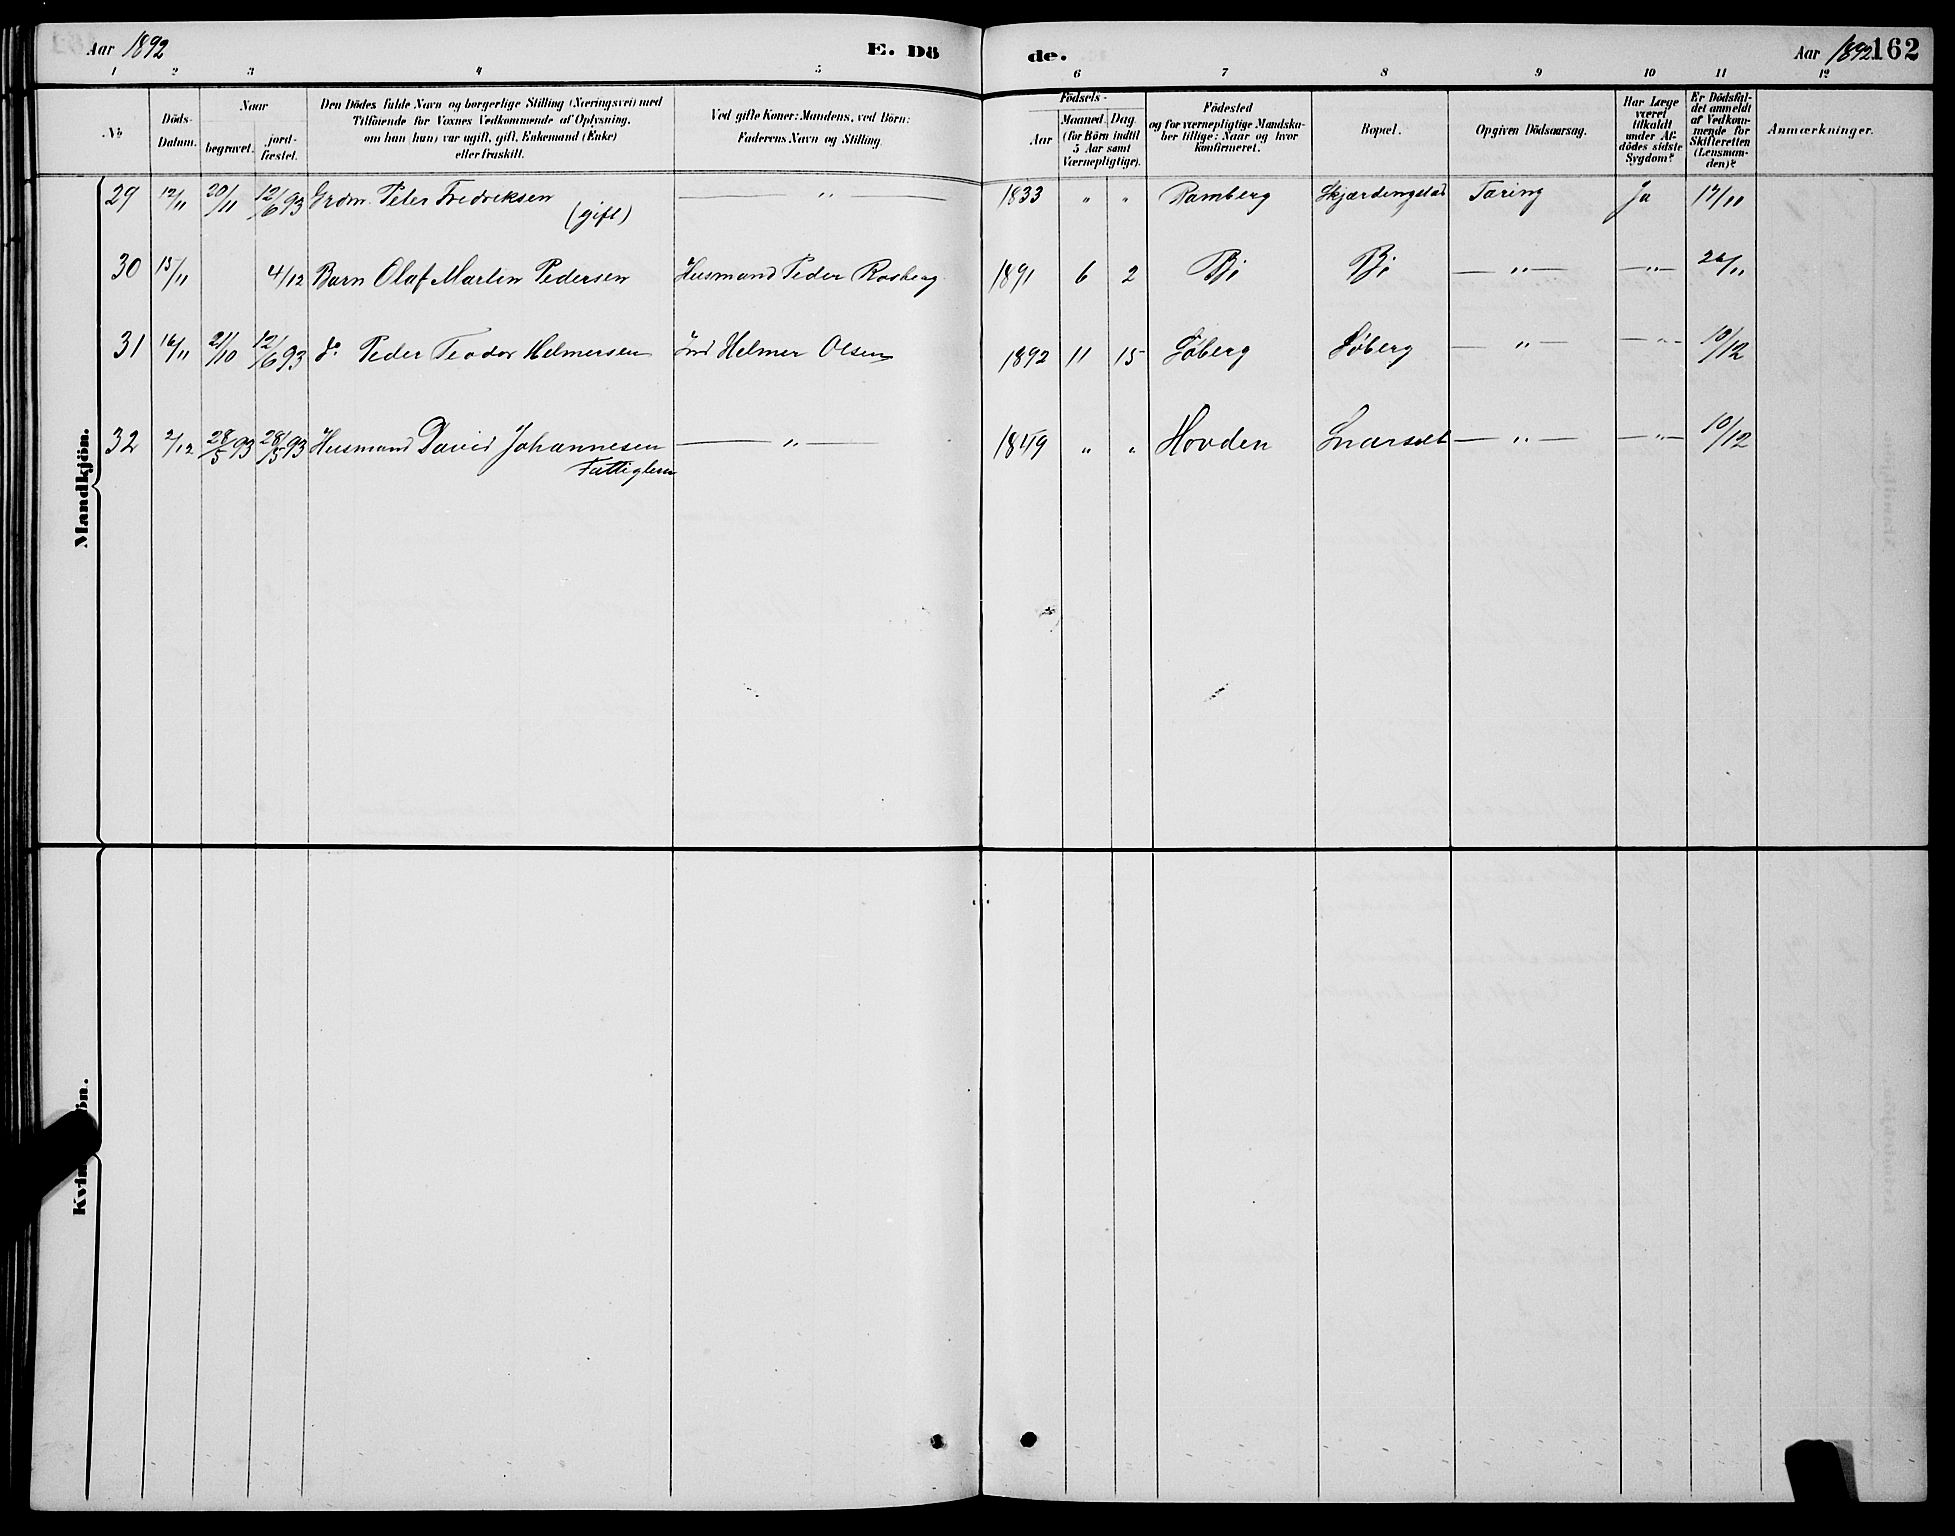 Aar 1892 E. Dö de. Aar 1892 162
1 2 3 4 5 6 7 8 9 10 11 12
No
Döds-Datum.
Naar
begravet.
jord-fæstet.
Den Dödes fulde Navn og borgerlige Stilling (Næringsvei) med
Tilföiende for Voxnes Vedkommende af Oplysning,
om han (hun) var ugift, gift, Enkemand (Enke)
eller fraskilt.
Ved gifte Koner: Mandens, ved Börn:
Faderens Navn og Stilling.
Födsels-
Aar
Maaned Dag
(for Börn indtil
5 Aar samt
Værnepligtige).
Födested
og for værnepligtige Mandska-
ber tillige: Naar og hvor
konfirmeret.
Bopæl.
Opgiven Dödsaarsag.
Har Læge
været
tilkaldt
under Af-
dödes sidste
Sygdom?
Er Dödsfal-
det anmeldt
af Vedkom-
mende for
Skifteretten
(Lensman-
den)?
Anmærkninger.
Mandkjön.
29 12/11 20/11 12/6 93 Grdm. Peter Fredriksen — " — 1833 " " Ramberg Skjærdingstad Tæring Ja 17/11
(gift)
30 15/11 4/12 Barn Olaf Martin Pedersen Husmand Peder Rosberg 1891 6 2 By By — " — — " — 26/11
31 16/11 21/10 12/6 93 do Peder Teodor Helmersen Ind Helmer Olsen 1892 11 15 Söberg Söberg — " — — " — 10/12
32 2/12 28/5 93 28/5 93 Husmand David Johannesen — " — 1849 " " Hovden Snarset — " — — " — 10/12
Fattiglem